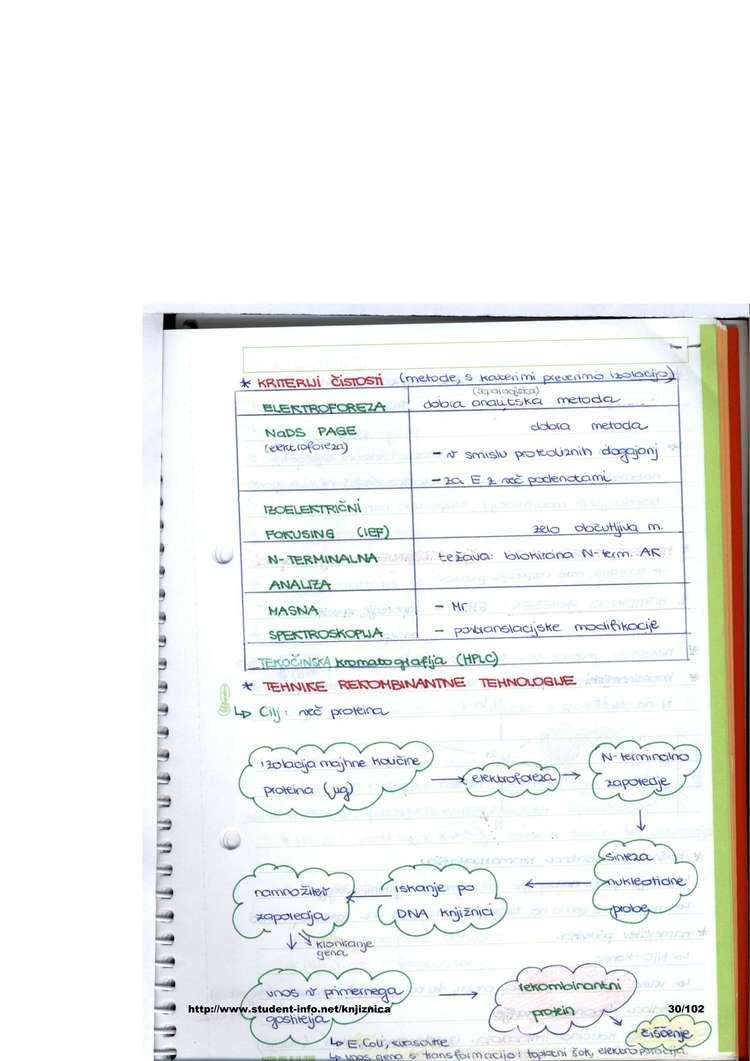 * KRITERIJI ČISTOSTI (metode, s katerimi preverimo izolacijo)
ELEKTROFOREZA dobra analitska metoda
NaDS PAGE dobra metoda
(elektroforeza) - v smislu proteoliznih dogajanj
- za E z več podenotami
IZOELEKTRIČNI
FOKUSING (IEF) zelo občutljiva m.
N-TERMINALNA težava: blokirana N-term. AK
ANALIZA
MASNA - Mr
SPEKTROSKOPIJA - posttranslacijske modifikacije
TEKOČINSKA kromatografija (HPLC)
* TEHNIKE REKOMBINANTNE TEHNOLOGIJE
↳ Cilj: več proteina
izolacija majhne količine
proteina (µg)
→ elektroforeza →
N-terminalno
zaporedje
↓
sinteza
nukleotidne
probe
←
iskanje po
DNA knjižnici
←
namnožitev
zaporedja
↓ ↘ kloniranje
gena
vnos v primernega
gostitelja
→
rekombinantni
protein
čiščenje
http://www.student-info.net/knjiznica 30/102
↳ E. Coli, kvasovke
↳ vnos gena s transformacijo: toplotni šok, elektroporacija